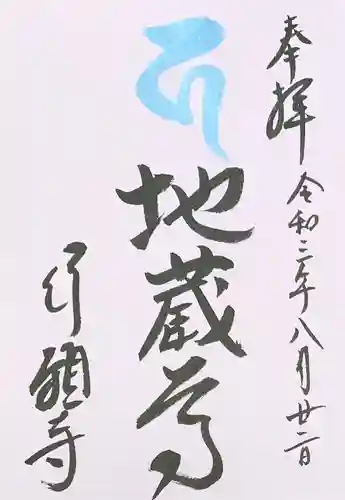 奉拝 令和二年八月廿二日
地蔵尊
行願寺